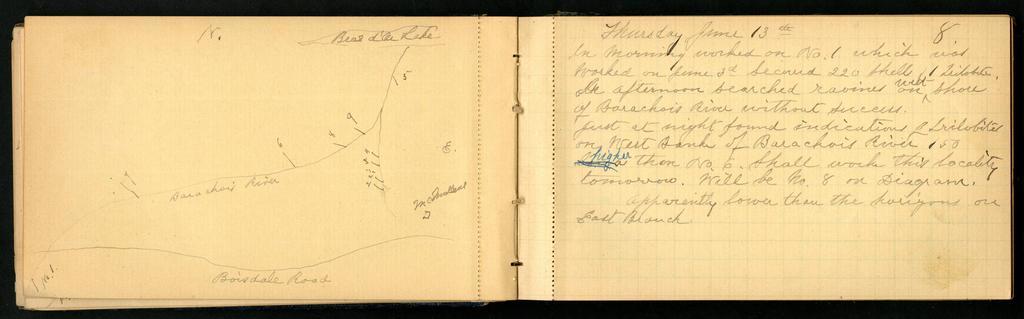 N.
Bras d'Or Lake
5
9
8
6
7
E.
Barachois River
McMullens
Boisdale Road
No. 1.
8
Thursday June 13th
In morning worked on No. 1 which was
worked on June 3d secured 220 shells, 1 Trilobite.
In afternoon searched ravines on west shore
of Barachois River without success.
Just at night found indications of Trilobites
on West Bank of Barachois River 150
higher than No 6. Shall work this locality
tomorrow. Will be No. 8 on Diagram.
Apparently lower than the horizons on
East Branch